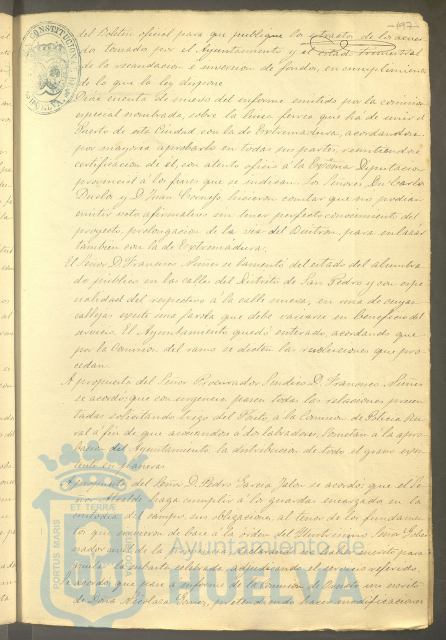 197
del Boletin oficial para que publique los extractos de los acuer-
dos tomados por el Ayuntamiento y el estado trimestral
de la recaudacion é inversion de fondos, en cumplimiento
de lo que la ley dispone.
Dada cuenta de nuevo del informe emitido por la comision
especial nombrada, sobre la linea ferrea que ha de unir el
Puerto de esta Ciudad con la de Extremadura, acordandose
por mayoria aprobarlo en todas sus partes, remitiendose
certificacion de él, con atento oficio á la Excma Diputacion
provincial á los fines que se indican. Los Señores Don Carlos
y D. Juan Cornejo hicieron constar que no podian
emitir voto afirmativo sin tener perfecto conocimiento del
proyecto, prolongacion de la via del Buitron, para enlazar
tambien con la de Extremadura.
El Señor D. Francisco se lamentó del estado del alumbra-
do público en las calles del Distrito de San Pedro y con espe-
cialidad del respectivo á la calle nueva, en una de cuyas
callejas existe una farola que debe variarse en beneficio del
servicio. El Ayuntamiento quedó enterado, acordando que
por la Comision del ramo se dicten las resoluciones que pro-
cedan.
A propuesta del Señor Procurador Sindico D. Francisco
se acordó: que con urgencia pasen todas las relaciones presen-
tadas solicitando trigo del Pósito, á la Comision de Policia Ru-
ral á fin de que asociandose á dos labradores, sometan á la apro-
bacion del Ayuntamiento la distribucion de todo el grano exis-
tente en paneras.
A propuesta del Señor D. Pedro Garcia Jalon se acordó: que el Se-
ñor Alcalde haga cumplir á los guardas encargados en la
custodia de campos sus obligaciones, al tenor de los fundamen-
tos que sirvieron de base á la orden del Ilustrisimo Señor Gober-
nador civil de la provincia, adjudicando el servicio referido.
Se acordó, que pase á informe de la Comision de Ornato un escrito
de Doña Nicolasa Gomez, pretendiendo hacer modificaciones
PORTUS MARIS ET TERRÆ
Ayuntamiento de
HUELVA